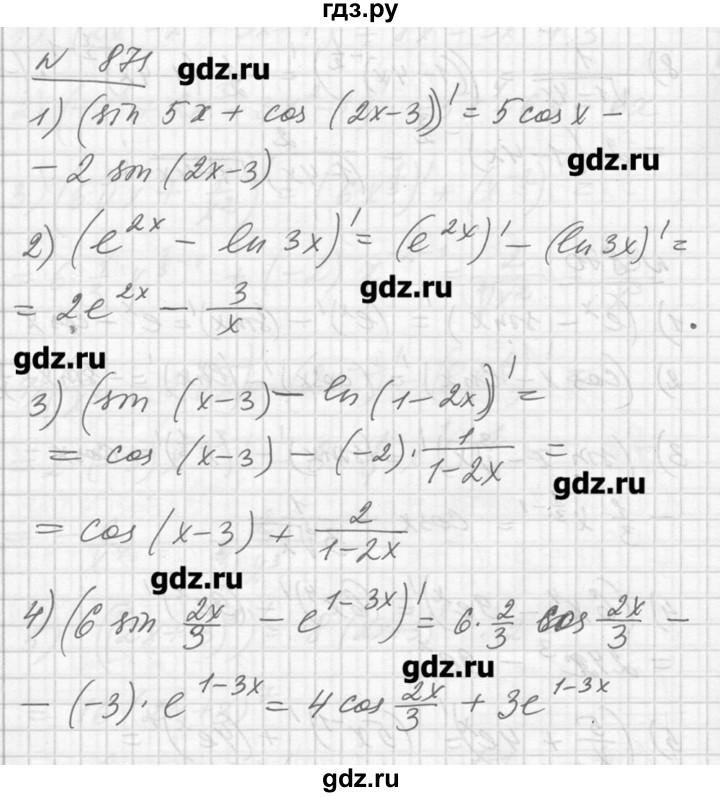 гдз.ру
N 871
gdz.ru
1) (sin 5x + cos (2x-3))' = 5 cos x -
gdz.ru
- 2 sin (2x-3)
2) (e^{2x} - ln 3x)' = (e^{2x})' - (ln 3x)' =
gdz.ru
= 2e^{2x} - 3/x
gdz.ru
3) (sin (x-3) - ln (1-2x))' =
= cos (x-3) - (-2) · 1/(1-2x) =
gdz.ru
= cos (x-3) + 2/(1-2x)
gdz.ru
4) (6 sin 2x/3 - e^{1-3x})' = 6 · 2/3 cos 2x/3 -
gdz.ru
- (-3) · e^{1-3x} = 4 cos 2x/3 + 3e^{1-3x}
gdz.ru